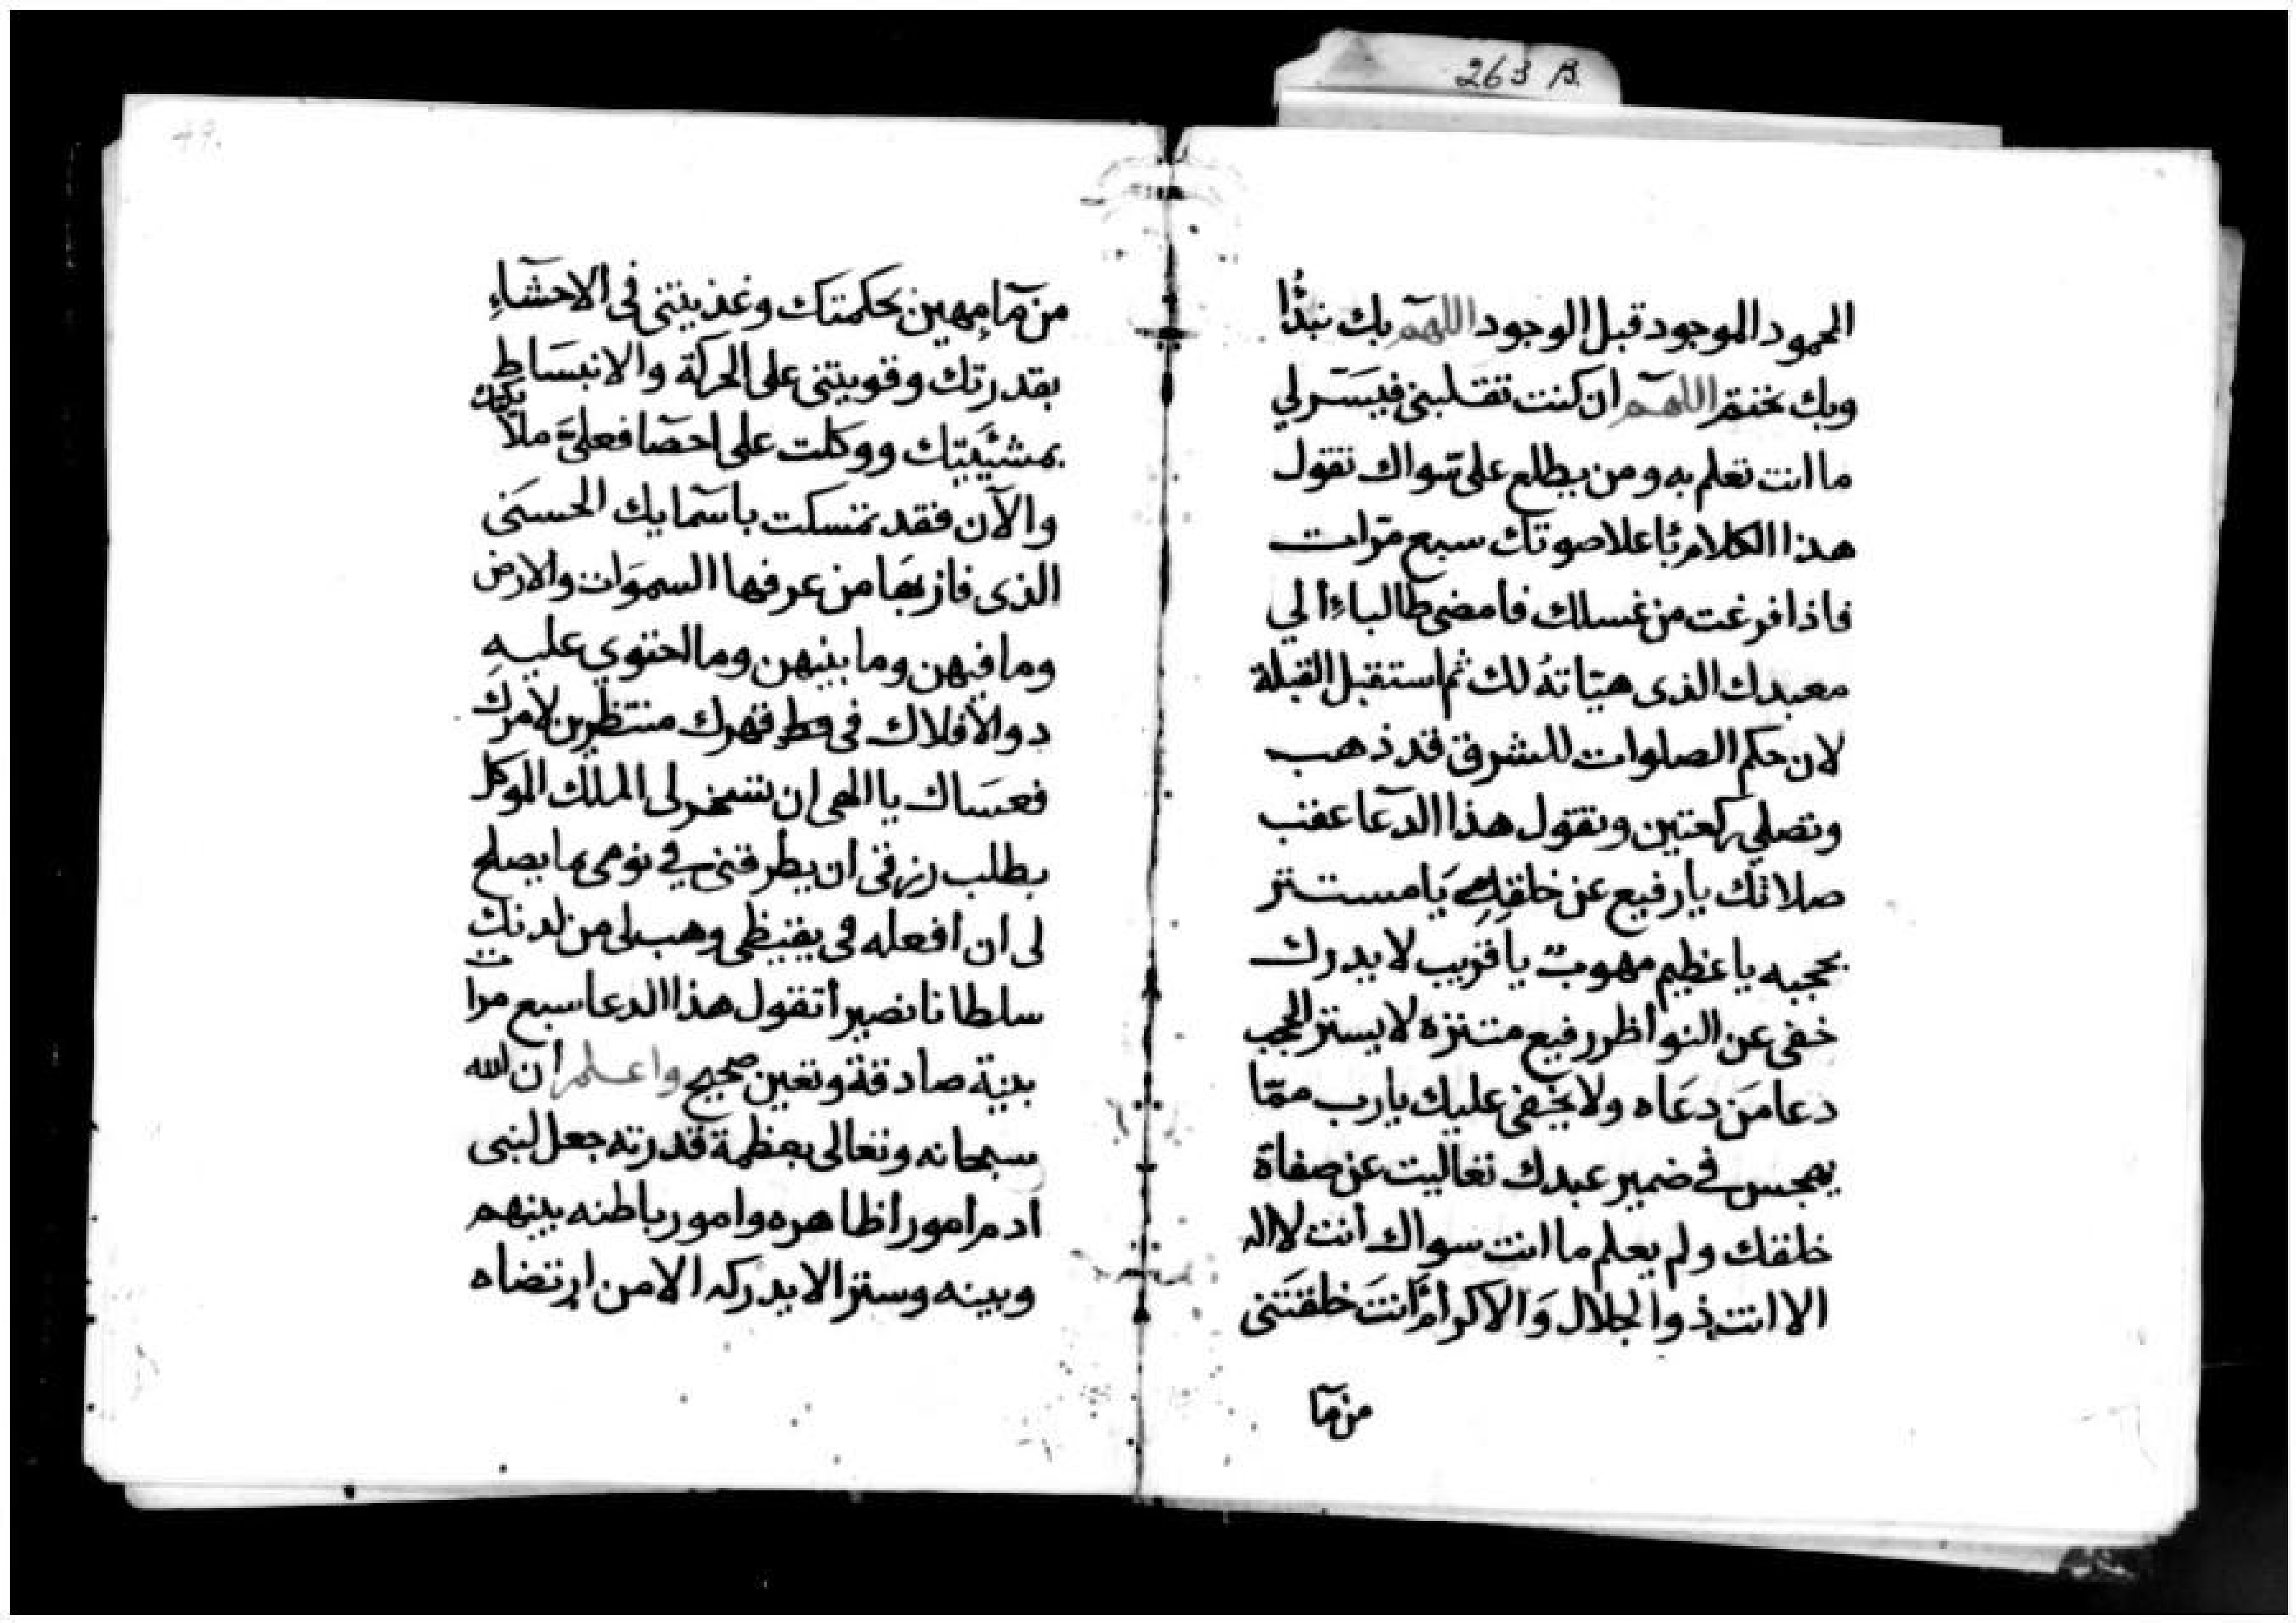 263 B.
المحمود الموجود قبل الوجود اللهم بك نبدُأ
وبك نختم اللهم ان كنت تقلبنى فيسّر لي
ما انت تعلم به ومن يطلع على سواك تقول
هذا الكلام بأعلا صوتك سبع مرّات
فاذا فرغت من غسلك فامضى طالباء الي
معبدك الذى هيّاتهُ لك ثم استقبل القبلة
لان حكم الصلوات للشرق قد ذهب
وتصلي ركعتين وتقول هذا الدعآ عقب
صلاتك يا رفيع عن خلقه يَا مستتر
بحجبه يا عظيم مهوبٌ يا قريب لا يدرك
خفى عن النواظر رفيع متنزه لا يستتر الحجب
دعا مَن دعَاه ولا يخفى عليك يا رب ممّا
يهجس في ضمير عبدك تعاليت عن صفاة
خلقك ولم يعلم ما انت سواك أنت لا اله
الا انت ذو الجلال وَالاكرام أنتَ خلقتَنى
من مآ
49.
من مآ مهين بحكمتك وغذيتنى فى الاحشآءِ
بقدرتك وقويتنى على الحركة والانبسَاط
بمشيّتك ووكلت على احصآ فعلىَّ ملآ
يكتك
والآن فقد تمسكت باسمآيك الحسنَى
الذى فاز بهَا من عرفها السموَات والارض
وما فيهن وما بينهن وما احتوي عليهِ
دو الأفلاك فى قهرك منتظرين لامرك
فعسَاك يا الهى ان تسخر لى الملك الموكل
بطلب رزقى ان يطرقنى في نومى بما يصلح
لى ان افعله فى يقيظى وهب لى من لدنك
سلطانا نصيرأ تقول هذا الدعا سبع مرات
بنية صادقة وتعين صحيح واعلم أن الله
سبحانه وتعالى بعظمة قدرته جعل لبنى
ادم أمورأ ظاهره وامور باطنه بينهم
وبينه وسترا لا يدركه الا من ارتضاه